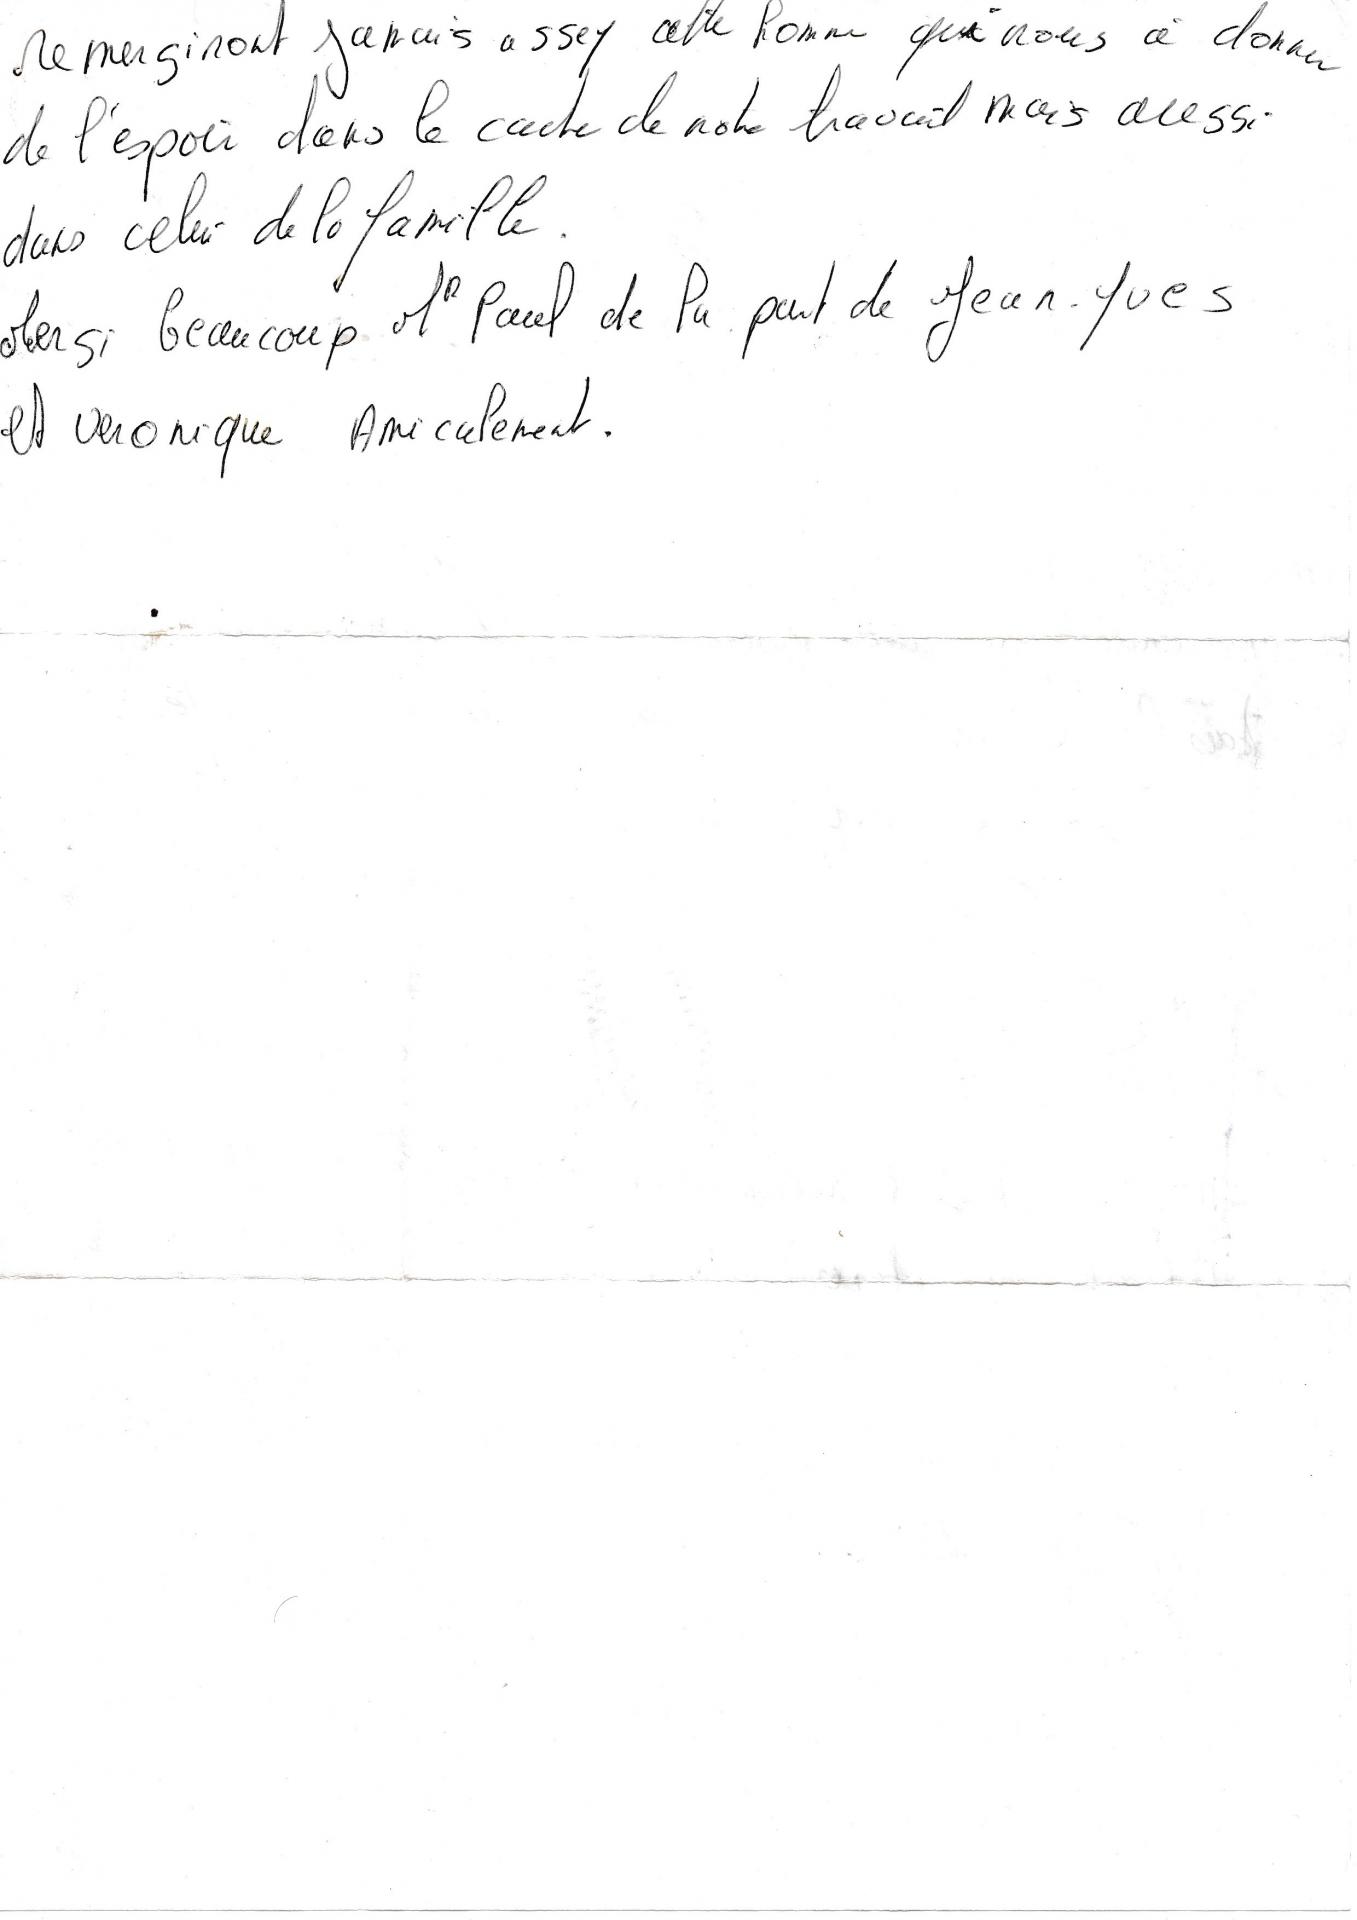 Remergiront jamais assey cette homme qui nous à donner
de l'espoir dans le cadre de notre travail mais aussi
dans celui de la famille.
Mersi beaucoup Mr Paul de la part de Jean-Yves
et veronique Amicalement.